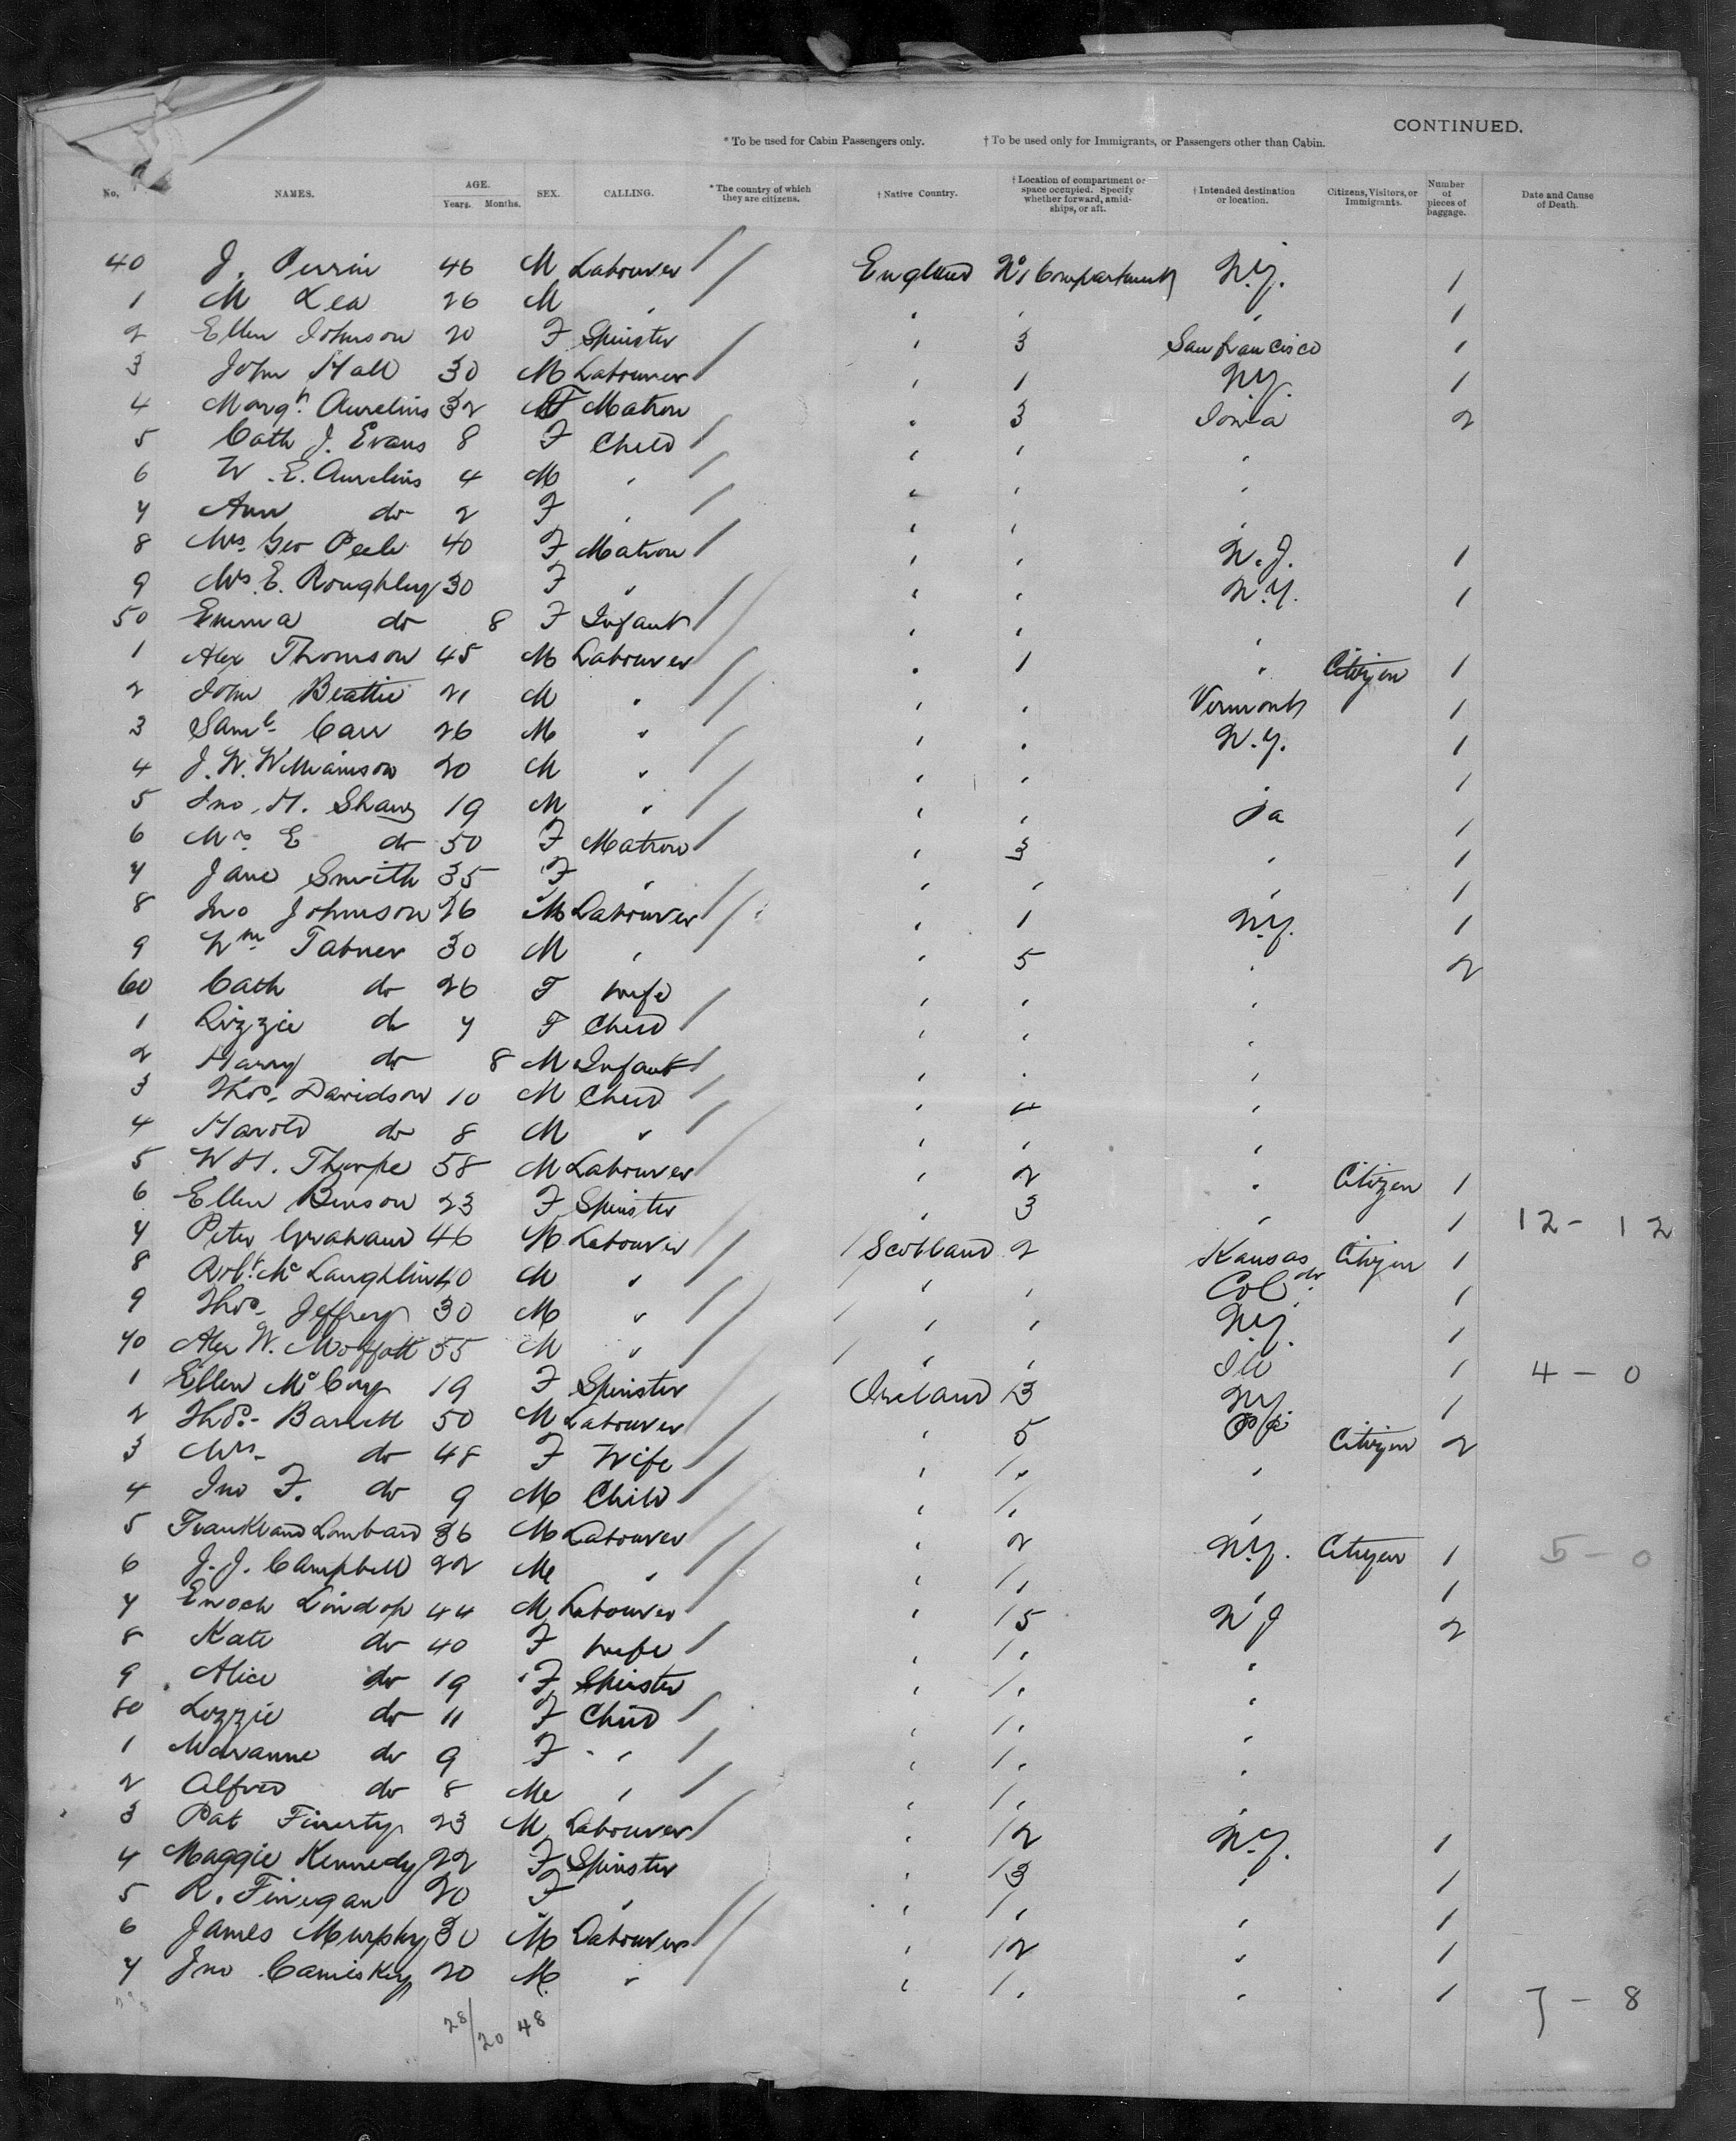 CONTINUED.
* To be used for Cabin Passengers only. † To be used only for Immigrants, or Passengers other than Cabin.
No. NAMES. AGE. Years. Months. SEX. CALLING. * The country of which they are citizens. † Native Country. † Location of compartment or space occupied. Specify whether forward, amidships, or aft. † Intended destination or location. Citizens, Visitors, or Immigrants. Number of pieces of baggage. Date and Cause of Death.
40 J. Perrin 46 M Labourer England No 1 Compartment N.Y. 1
1 M Lea 26 M " " " " 1
2 Ellen Johnson 20 F Spinster " 3 San francisco 1
3 John Hall 30 M Labourer " 1 N.Y. 1
4 Margt. Aurelius 32 F Matron " 3 Iowa 2
5 Cath J. Evans 8 F Child " " "
6 W. E. Aurelius 4 M " " " "
7 Ann do 2 F " " " "
8 Mrs. Geo Peele 40 F Matron " " N.J. 1
9 Mrs. E. Roughley 30 F " " " N.Y. 1
50 Emma do 8 F Infant " " "
1 Alex Thomson 45 M Labourer " 1 " Citizen 1
2 John Beattie 21 M " " " Vermont 1
3 Saml Carr 26 M " " " N.Y. 1
4 J. W. Williamson 20 M " " " " 1
5 Jno. H. Shaw 19 M " " " Pa 1
6 Mrs E do 50 F Matron " 3 " 1
7 Jane Smith 35 F " " " " 1
8 Jno Johnson 26 M Labourer " 1 N.Y. 1
9 Wm Tabner 30 M " " 5 " 2
60 Cath do 26 F Wife " " "
1 Lizzie do 7 F Child " " "
2 Harry do 8 M Infant " " "
3 Thos. Davidson 10 M Child " 4 "
4 Harold do 8 M " " " "
5 W H. Thorpe 58 M Labourer " 2 " Citizen 1
6 Ellen Benson 23 F Spinster " 3 " 1 12 - 12
7 Peter Graham 46 M Labourer Scotland 2 Kansas Citizen 1
8 Robt. McLaughlin 40 M " " " Col do 1
9 Thos. Jeffrey 30 M " " " N.Y. 1
70 Alex W. Moffatt 55 M " " " Ill 1 4 - 0
1 Ellen McCoy 19 F Spinster Ireland 3 N.Y. 1
2 Thos. Barrett 50 M Labourer " 5 Pa Citizen 2
3 Mrs. do 48 F Wife " " "
4 Jno F. do 9 M Child " " "
5 Frankland Lombard 36 M Labourer " 2 N.Y. Citizen 1 5 - 0
6 J. J. Campbell 22 M " " " " 1
7 Enoch Lindop 44 M Labourer " 5 N J 2
8 Kate do 40 F Wife " " "
9 Alice do 19 F Spinster " " "
80 Lizzie do 11 F Child " " "
1 Maranne do 9 F " " " "
2 Alfred do 8 M " " " "
3 Pat Finerty 23 M Labourer " 2 N.Y. 1
4 Maggie Kennedy 22 F Spinster " 3 " 1
5 R. Finegan 20 F " " " " 1
6 James Murphy 30 M Labourer " 2 " 1
7 Jno Camiskey 20 M " " " " 1 7 - 8
28/20 48